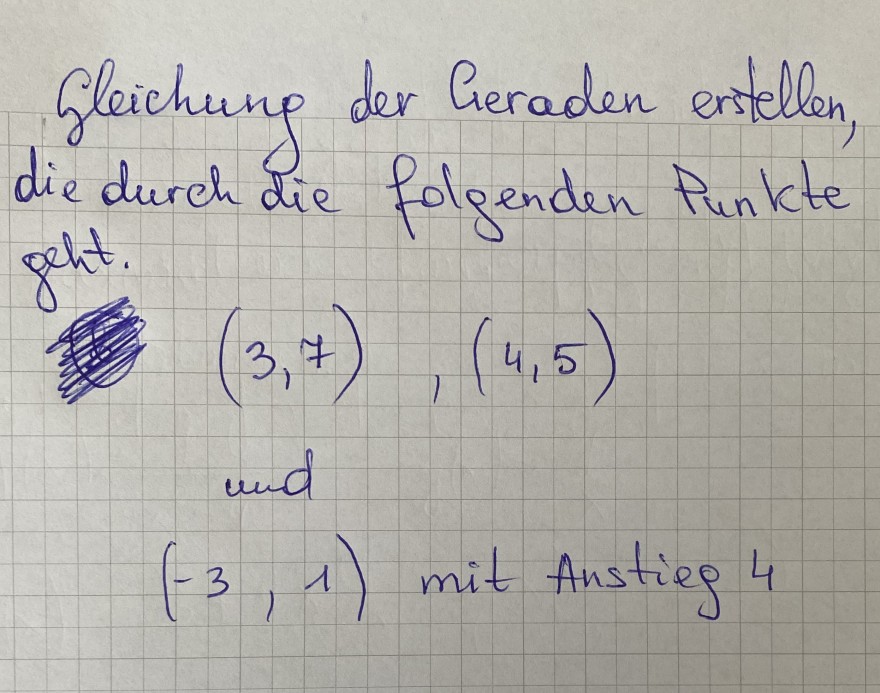 Gleichung der Geraden erstellen,
die durch die folgenden Punkte
geht.
(3,7) , (4,5)
und
(-3 , 1) mit Anstieg 4